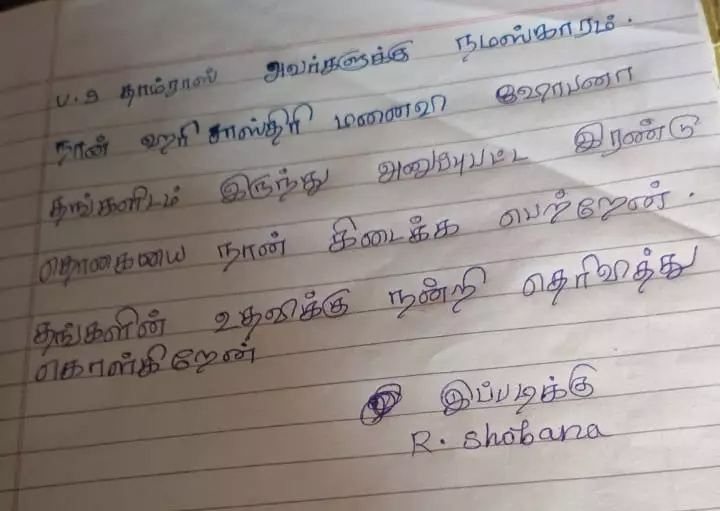 ப.ஓ தாம்ராஸ் அவர்களுக்கு நமஸ்காரம்.
நான் ஹரி சாஸ்திரி மனைவி ஷோபனா
தங்களிடம் இருந்து அனுப்பபட்ட இரண்டு
தொகையை நான் கிடைக்க பெற்றேன்.
தங்களின் உதவிக்கு நன்றி தெரிவித்து
கொள்கிறேன்
இப்படிக்கு
R. Shobana